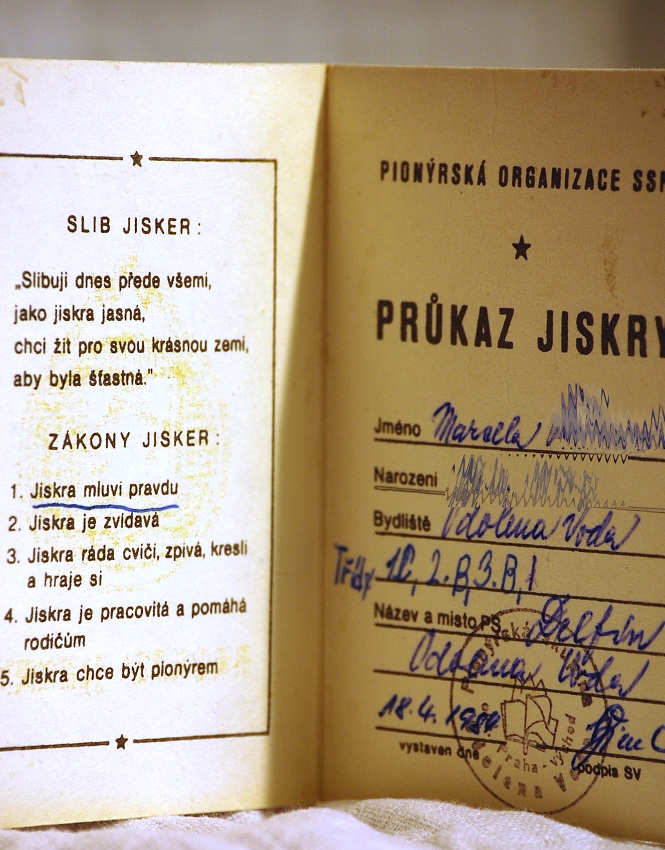 SLIB JISKER:
„Slibuji dnes přede všemi,
jako jiskra jasná,
chci žít pro svou krásnou zemi,
aby byla šťastná."
ZÁKONY JISKER:
1. Jiskra mluví pravdu
2. Jiskra je zvídavá
3. Jiskra ráda cvičí, zpívá, kreslí
a hraje si
4. Jiskra je pracovitá a pomáhá
rodičům
5. Jiskra chce být pionýrem
PIONÝRSKÁ ORGANIZACE
PRŮKAZ JISKRY
Jméno Marcella
Narození
Bydliště Voda
1C, 2.B, 3.B,
Název a místo PS Delfín
Voda
18.4.
vystaven dne podpis SV
Praha - východ